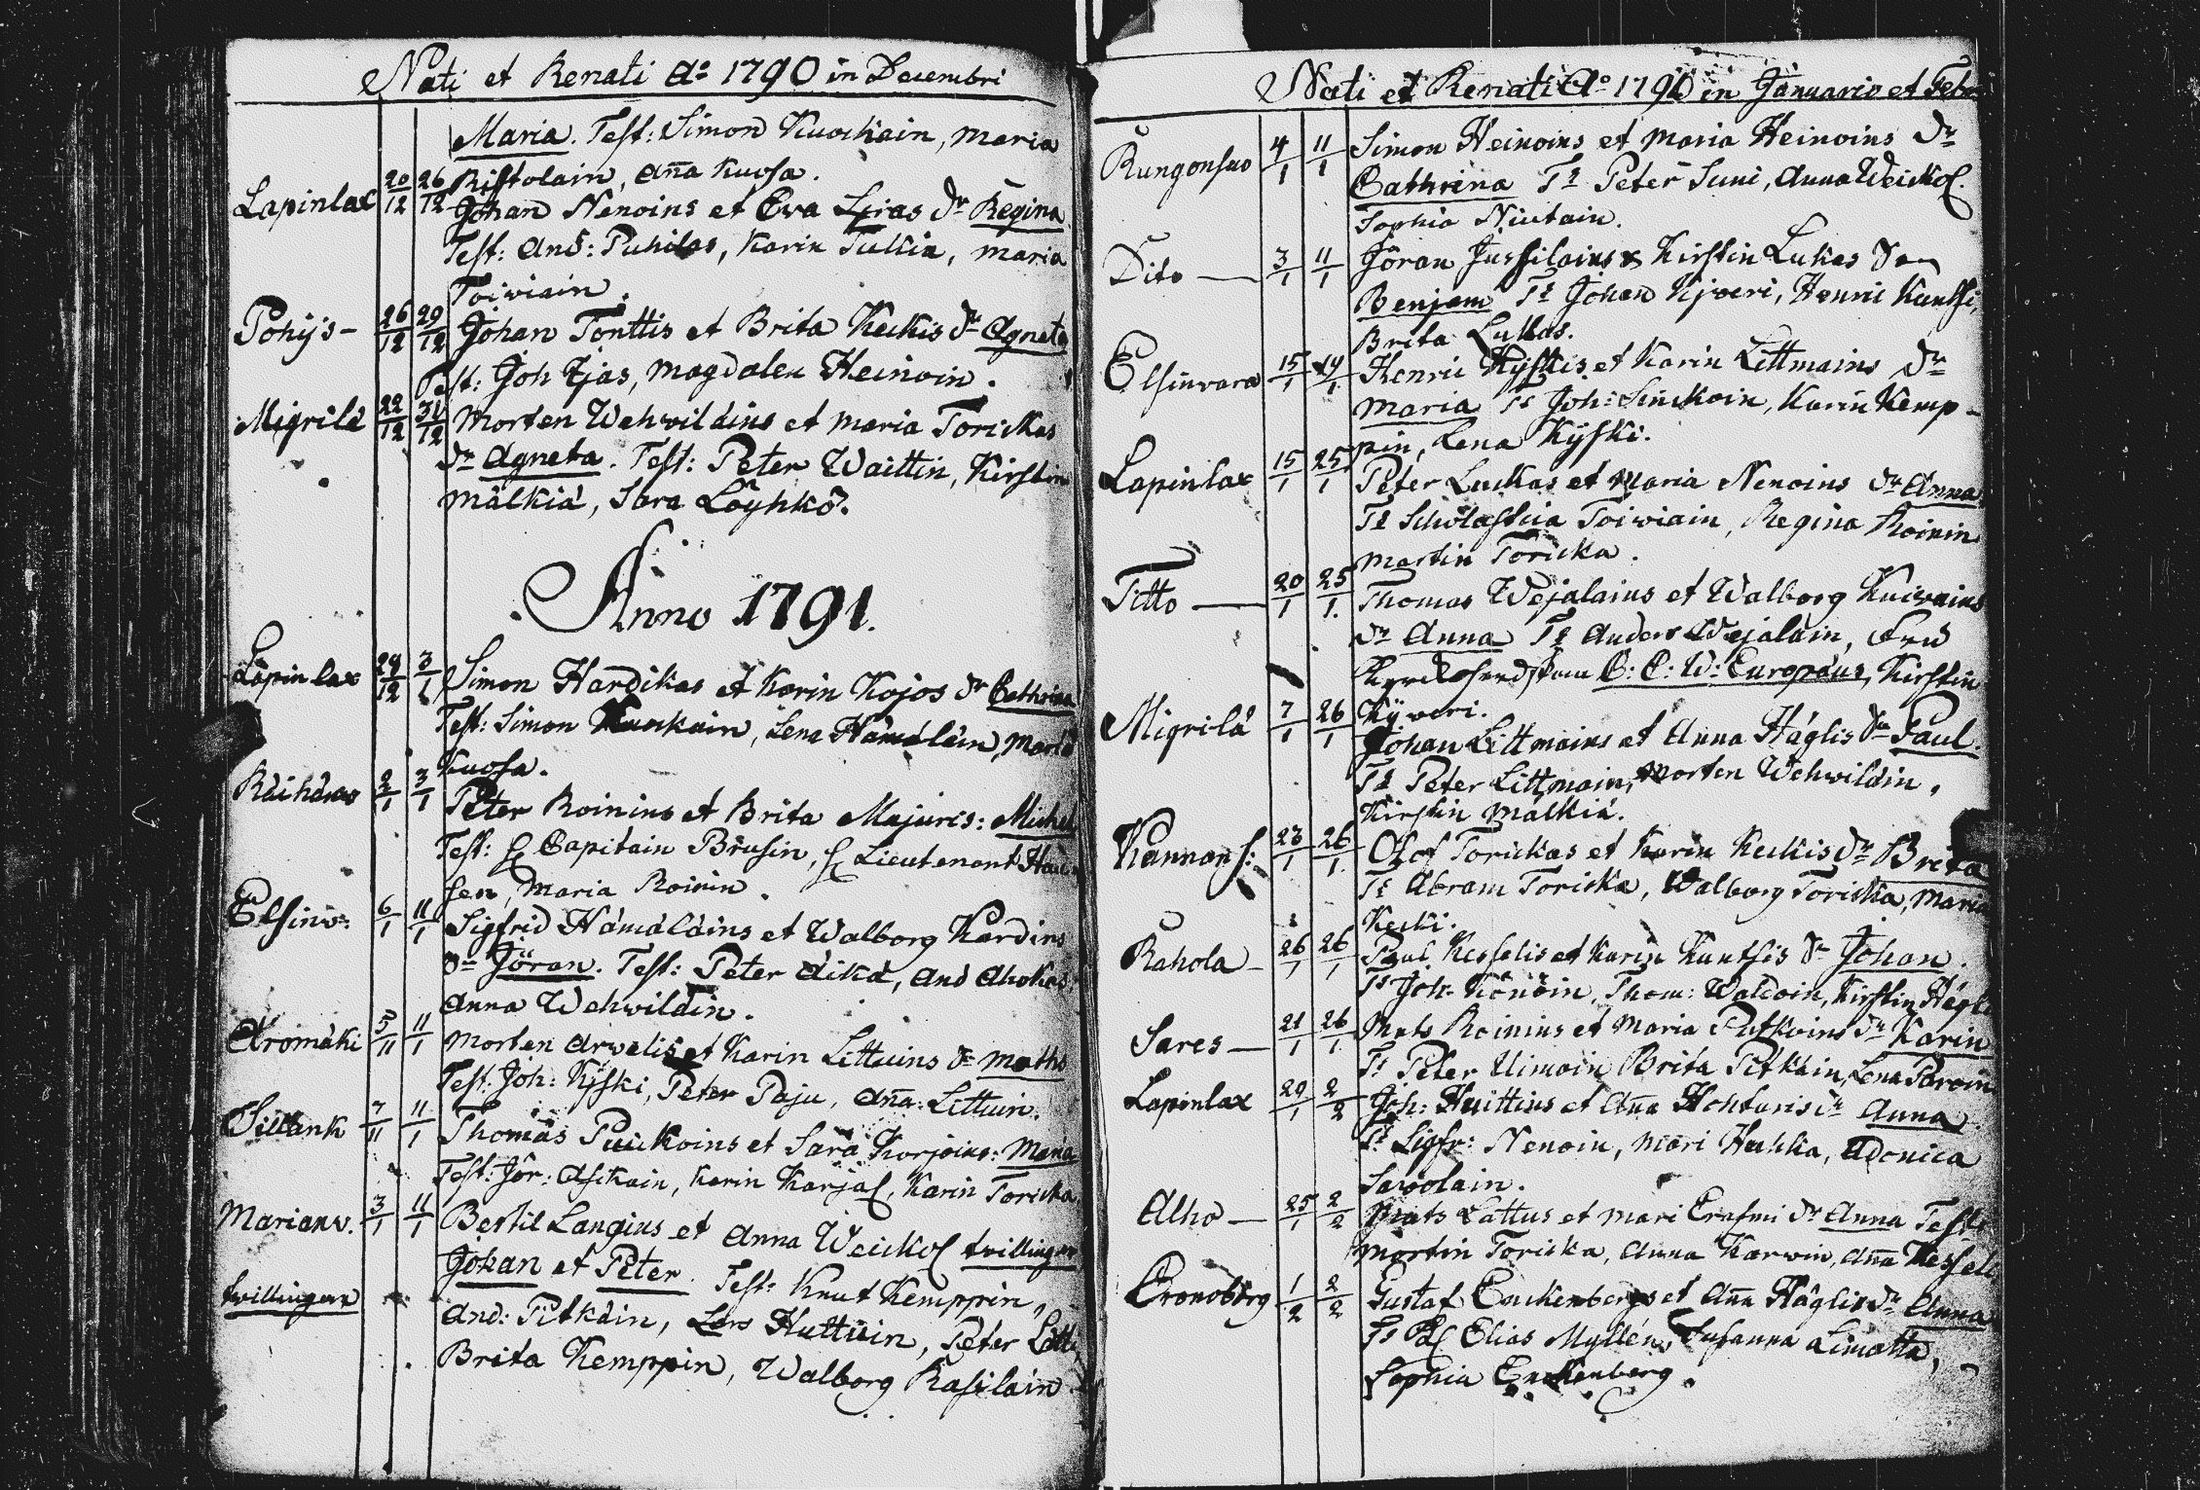 Nati et Renati Ao 1790 in Decembri
Maria. Test: Simon Kuockain, Maria
Ristolain, Aña Kuosa.
Lapinlax 20/12 26/12 Johan Nenoins et Eva Dr Regina
Test: And: Puhilas, Karin Tulkia, Maria
Toiwiain.
Pohjs- 26/12 29/12 Johan Tonttis et Brita Keckis Dr Agneta
Test: Joh Ijas, Magdalen Heinoin.
Migrilä 22/12 31/12 Morten Wehwiläins et Maria Torickas
Dr Agneta. Test: Peter Waittin, Kirstin
Mälkiä, Sara Löyhkö.
Anno 1791.
Lapinlax 29/12 3/1 Simon Hardikas et Karin Kojos Dr Cathrina
Test: Simon Kuockain, Lena Hämäläin, Maria
Kuosa.
2/1 3/1 Peter Roinins et Brita Majuris: Michel
Test: Capitain Brusin, Lieutenant
sen, Maria Roinin.
Elsinv: 6/1 11/1 Sigfrid Hämäläins et Walborg Kardins
Sn Jöran. Test: Peter Äikä, And Ahokas
Anna Wehwiläin.
Äromäki 5/11 11/1 Morten Arwelis et Karin Littuins Sn Maths
Test: Joh: Kÿski, Peter Paju, Aña: Littuin.
7/11 11/1 Thomas Puickoins et Sara Korjoins: Maria
Test: Jör: Asikain, Karin Karjal, Karin Toricka
Marianv. 3/1 11/1 Bertil Langius et Anna Weickol tvillingar
Johan et Peter. Test: Knut Kemppin,
tvillingar And: Pitkäin, Lars Huttuin, Peter
Brita Kemppin, Walborg Rasilain
Nati et Renati Ao 1791 in Januario et Feb
Rungonsuo 4/1 11/1 Simon Heinoins et Maria Heinoins Dr
Cathrina Ts Peter Suni, Anna Weickol.
Sophia Niutain.
Dito — 3/1 11/1 Jöran Jussilains & Kirstin Lukas Son
Benjam Ts Johan Kjweri, Henric Kuntsi,
Brita Lukkas.
Elsinvara 15/1 19/1 Henric Kÿskis et Karin Littmains Dr
Maria Ts Joh: Sinckoin, Karin Kemp-
pin, Lena Kÿski.
Lapinlax 15/1 25/1 Peter Luckas et Maria Nenoins Dr Anna
Ts Scholastica Toiwiain, Regina Roinin
Martin Toricka.
Titto — 20/1 25/1. Thomas Wejalains et Walborg Kuiwains
Dr Anna Ts Anders Wejalain, Fru
Kyrckoherdskan C: C: W: Europæus, Kirstin
Kÿveri.
Migrilä 7/1 26/1 Johan Littmains et Anna Häglis Sn Paul.
Ts Peter Littmain, Morten Wehwiläin,
Kirstin Mälkiä.
Kannans: 23/1 26/1. Olof Torickas et Karin Keckis Dr Brita
Ts Abram Toricka, Walborg Toricka, Maria
Kecki.
Rahola — 26/1 26/1 Paul Kesselis et Karin Kuntsis Sn Johan.
Ts Joh: Könöin, Thom: Waldoin, Kirstin Hägl
Sares — 21/1 26/1 Mats Roinins et Maria Putkoins Dr Karin
Ts Peter Uimoin Brita Pitkäin, Lena Paroin
Lapinlax 29/1 2/2 Joh: Huittins et Aña Hohturis Dr Anna.
Ts Sigfr: Nenoin, Mari Huhka, Adonica
Sawolain.
Alho — 25/1 2/2 Mats Lattus et Mari Erasmi Dr Anna Test:
Mortin Toricka, Anna Karwin, Aña Kesseli
Cronoborg 1/2 2/2 Gustaf Enckenbergs et Aña Häglis Dr Anna
Ts Elias Myllén, Susanna Limatta,
Sophia Enckenberg.